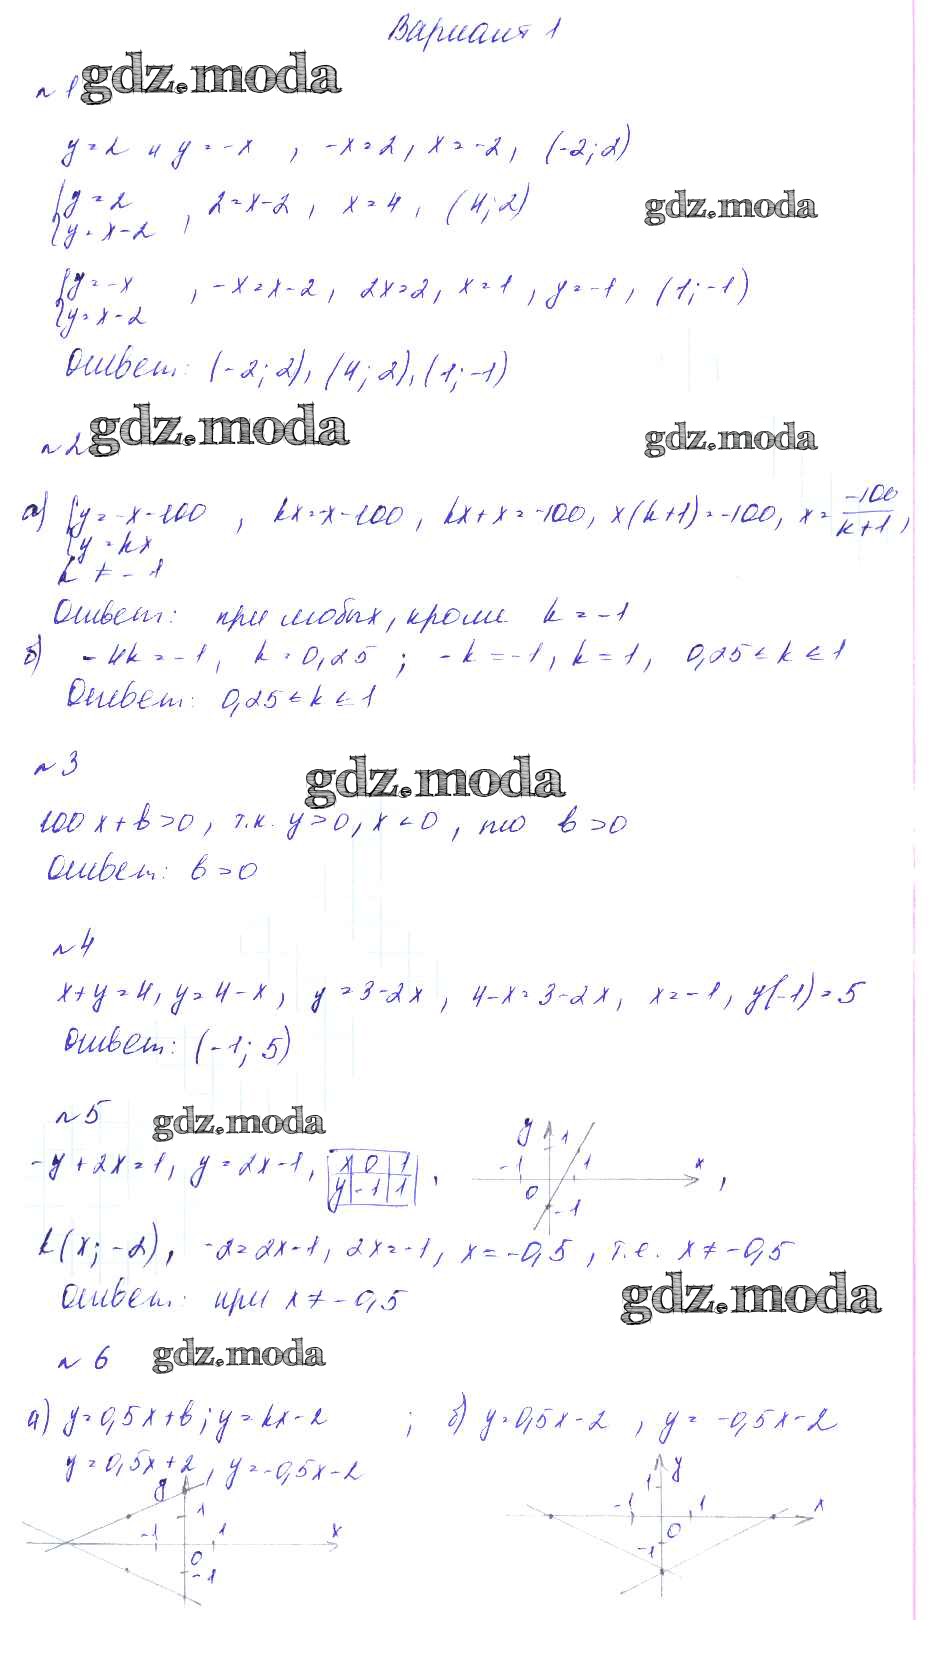 Вариант 1
№1 gdz.moda
y=2 и y=-x , -x=2, x=-2, (-2;2)
{y=2 , 2=x-2, x=4, (4;2) gdz.moda
{y=x-2
{y=-x , -x=x-2, 2x=2, x=1, y=-1, (1;-1)
{y=x-2
Ответ: (-2;2), (4;2), (1;-1)
№2 gdz.moda gdz.moda
а) {y=-x-100 , kx=-x-100, kx+x=-100, x(k+1)=-100, x=-100/k+1,
{y=kx
k≠-1
Ответ: при любых, кроме k=-1
б) -4k=-1, k=0,25; -k=-1, k=1, 0,25≤k≤1
Ответ: 0,25≤k≤1
№3 gdz.moda
100x+b>0, т.к. y>0, x<0, то b>0
Ответ: b>0
№4
x+y=4, y=4-x, y=3-2x, 4-x=3-2x, x=-1, y(-1)=5
Ответ: (-1;5)
№5 gdz.moda
-y+2x=1, y=2x-1, x 0 1 , y 1 -1 1 x 0 -1 ,
y -1 1
k(x;-2), -2=2x-1, 2x=-1, x=-0,5, т.е. x≠-0,5
Ответ: при x≠-0,5 gdz.moda
№6 gdz.moda
а) y=0,5x+b; y=kx-2 ; б) y=0,5x-2, y=-0,5x-2
y=0,5x+2, y=-0,5x-2
y 1 -1 1 x 0 -1
y 1 -1 1 x 0 -1